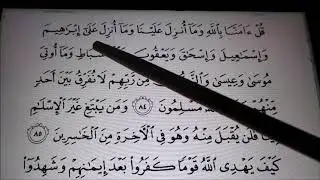 قُلْ ءَامَنَّا بِٱللَّهِ وَمَآ أُنزِلَ عَلَيْنَا وَمَآ أُنزِلَ عَلَىٰٓ إِبْرَٰهِيمَ
وَإِسْمَٰعِيلَ وَإِسْحَٰقَ وَيَعْقُوبَ سْبَاطِ وَمَآ أُوتِىَ
مُوسَىٰ وَعِيسَىٰ مِن رَّبِّهِمْ لَا نُفَرِّقُ بَيْنَ أَحَدٍ
مِّنْهُمْ مُسْلِمُونَ ٨٤ وَمَن يَبْتَغِ غَيْرَ ٱلْإِسْلَٰمِ
فَلَن يُقْبَلَ مِنْهُ وَهُوَ فِى ٱلْءَاخِرَةِ مِنَ ٱلْخَٰسِرِينَ ٨٥
كَيْفَ يَهْدِى ٱللَّهُ قَوْمًا كَفَرُوا۟ بَعْدَ إِيمَٰنِهِمْ وَشَهِدُوٓا۟